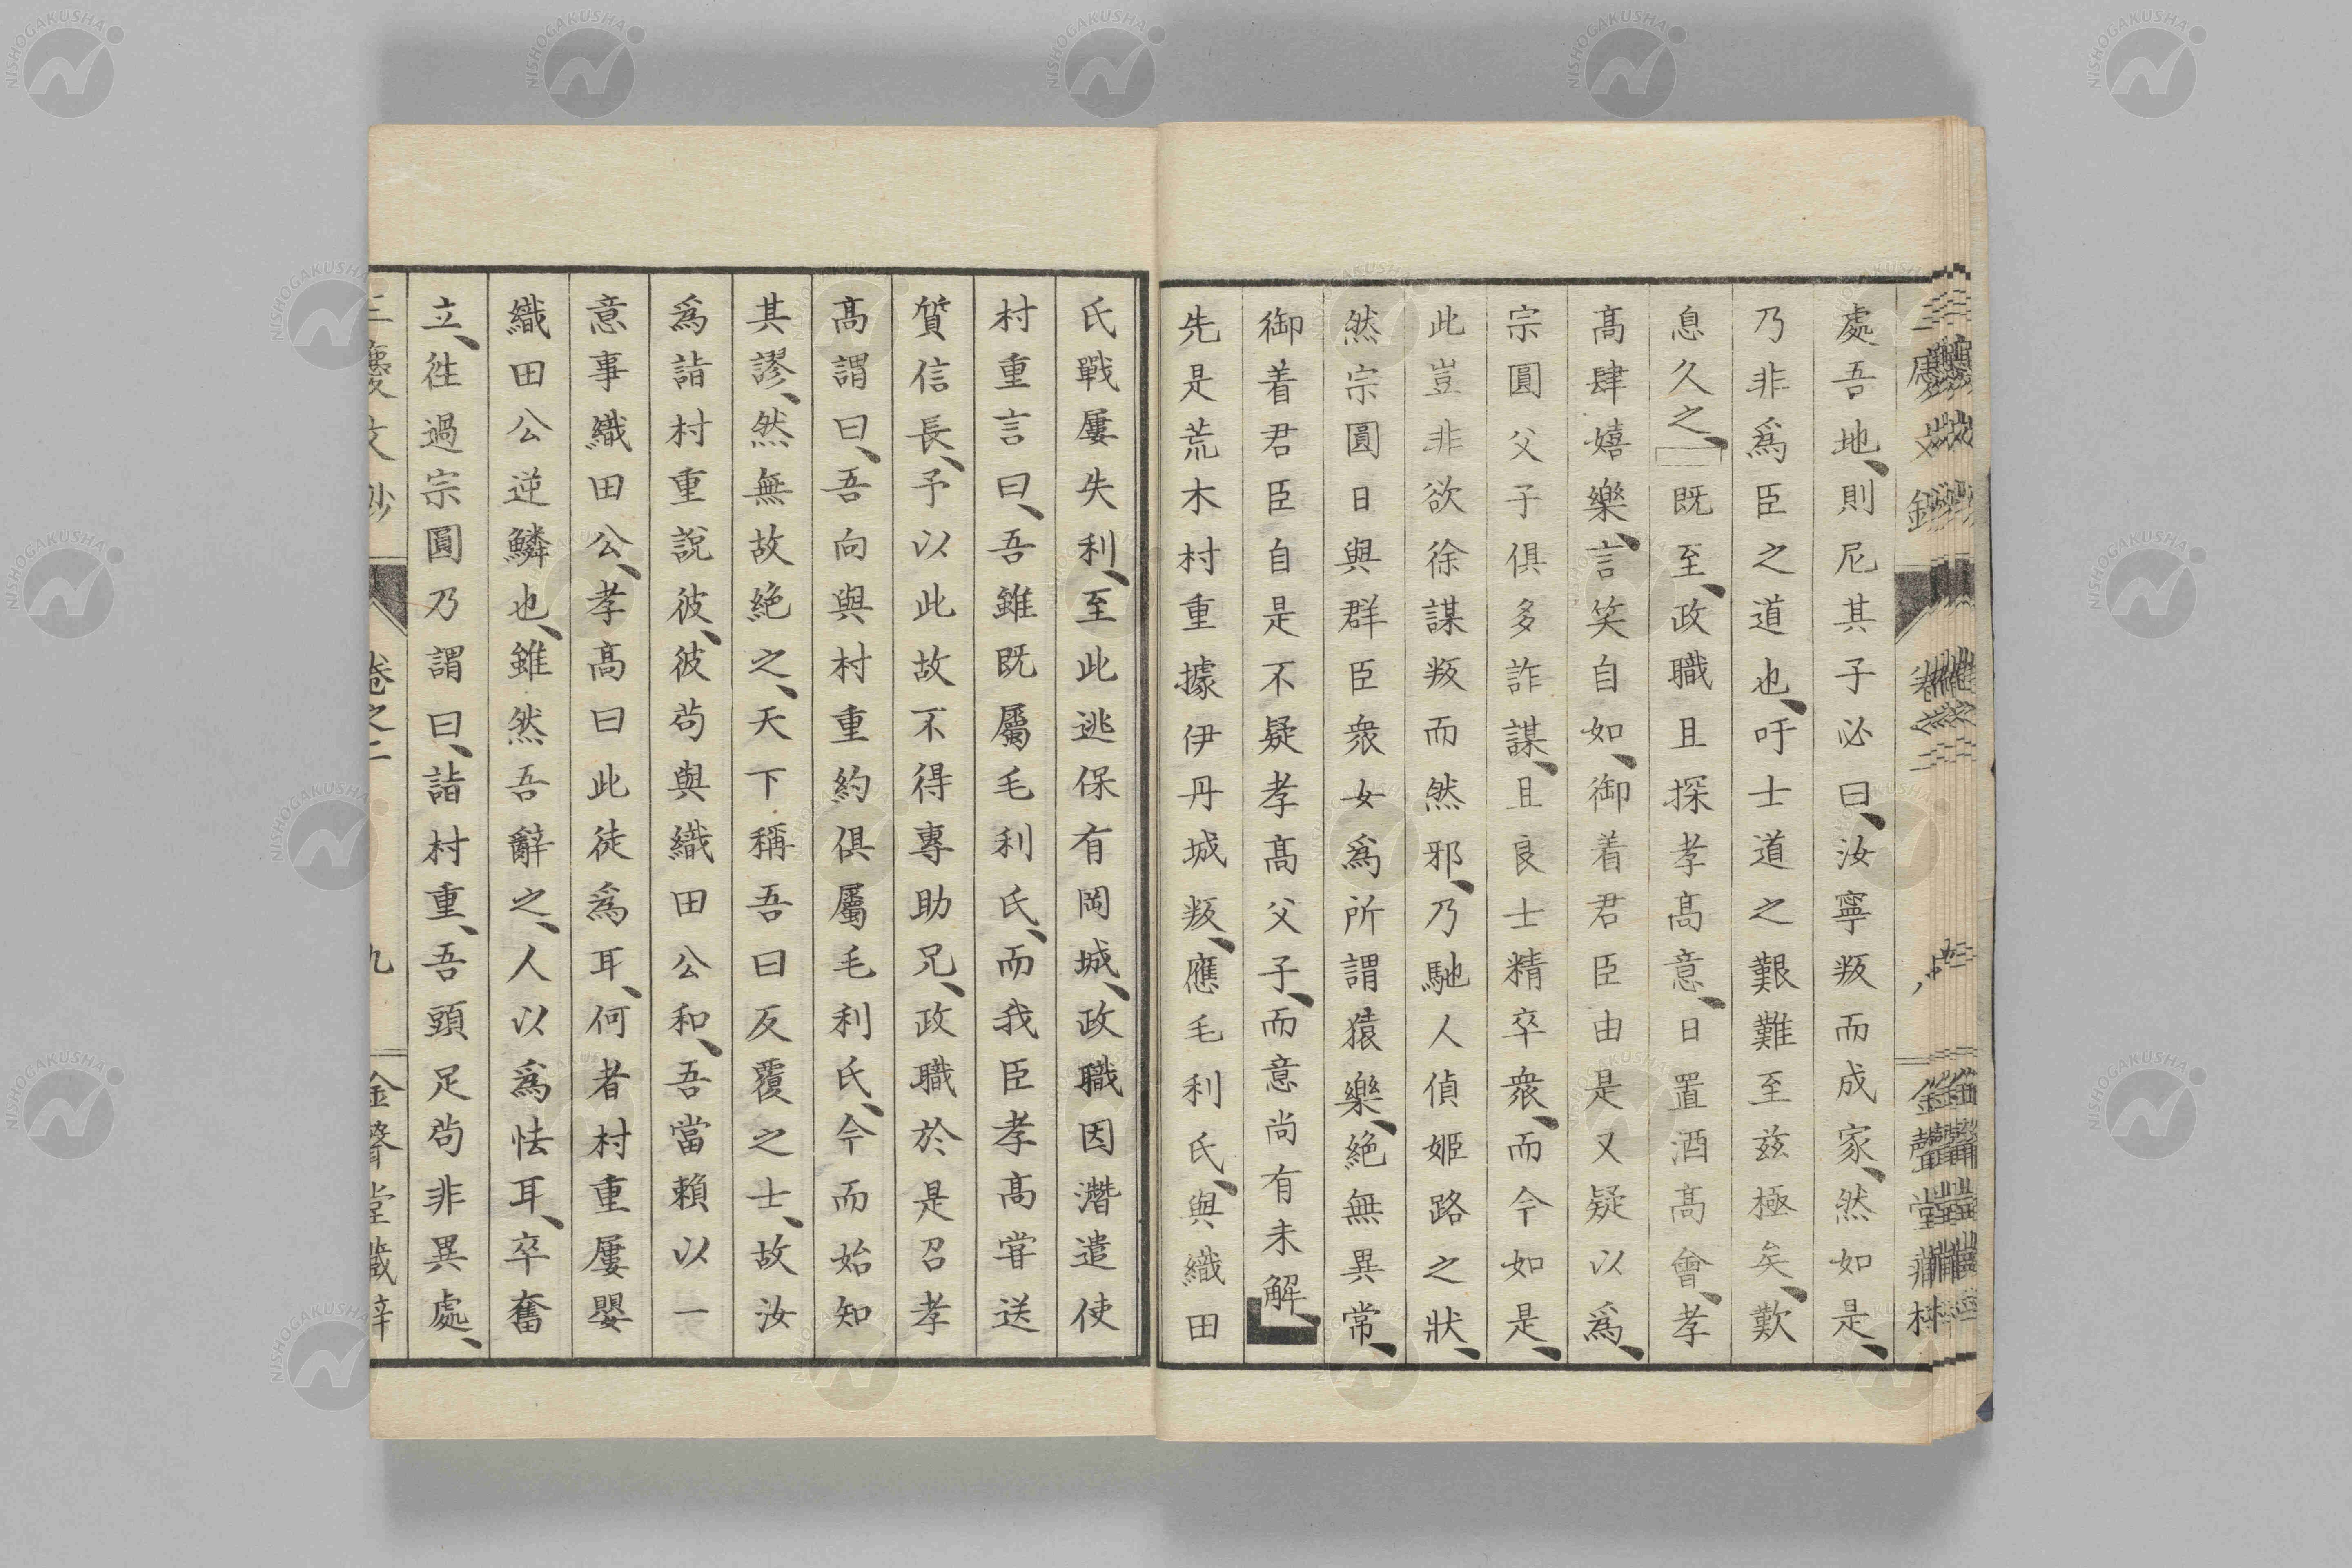 處吾地、則尼其子必曰、汝寧叛而成家、然如是、
乃非爲臣之道也、吁士道之艱難至茲極矣、歎
息久之、既至、政職且探孝高意、日置酒高會、孝
高肆嬉樂、言笑自如、御着君臣由是又疑以爲、
宗圓父子俱多詐謀、且良士精卒衆、而今如是、
此豈非欲徐謀叛而然邪、乃馳人偵姬路之狀、
然宗圓日與群臣衆女爲所謂猿樂、絶無異常、
御着君臣自是不疑孝高父子、而意尚有未解、
先是荒木村重據伊丹城叛、應毛利氏、與織田
氏戰屢失利、至此逃保有岡城、政職因潛遣使
村重言曰、吾雖既屬毛利氏、而我臣孝高甞送
質信長、予以此故不得專助兄、政職於是召孝
高謂曰、吾向與村重約俱屬毛利氏、今而始知
其謬、然無故絶之、天下稱吾曰反覆之士、故汝
爲詣村重說彼、彼苟與織田公和、吾當賴以一
意事織田公、孝高曰此徒爲耳、何者村重屢嬰
織田公逆鱗也、雖然吾辭之、人以爲怯耳、卒奮
立、徃過宗圓乃謂曰、詣村重、吾頭足苟非異處、
卷之二
九
金聲堂藏梓
NISHOGAKUSHA